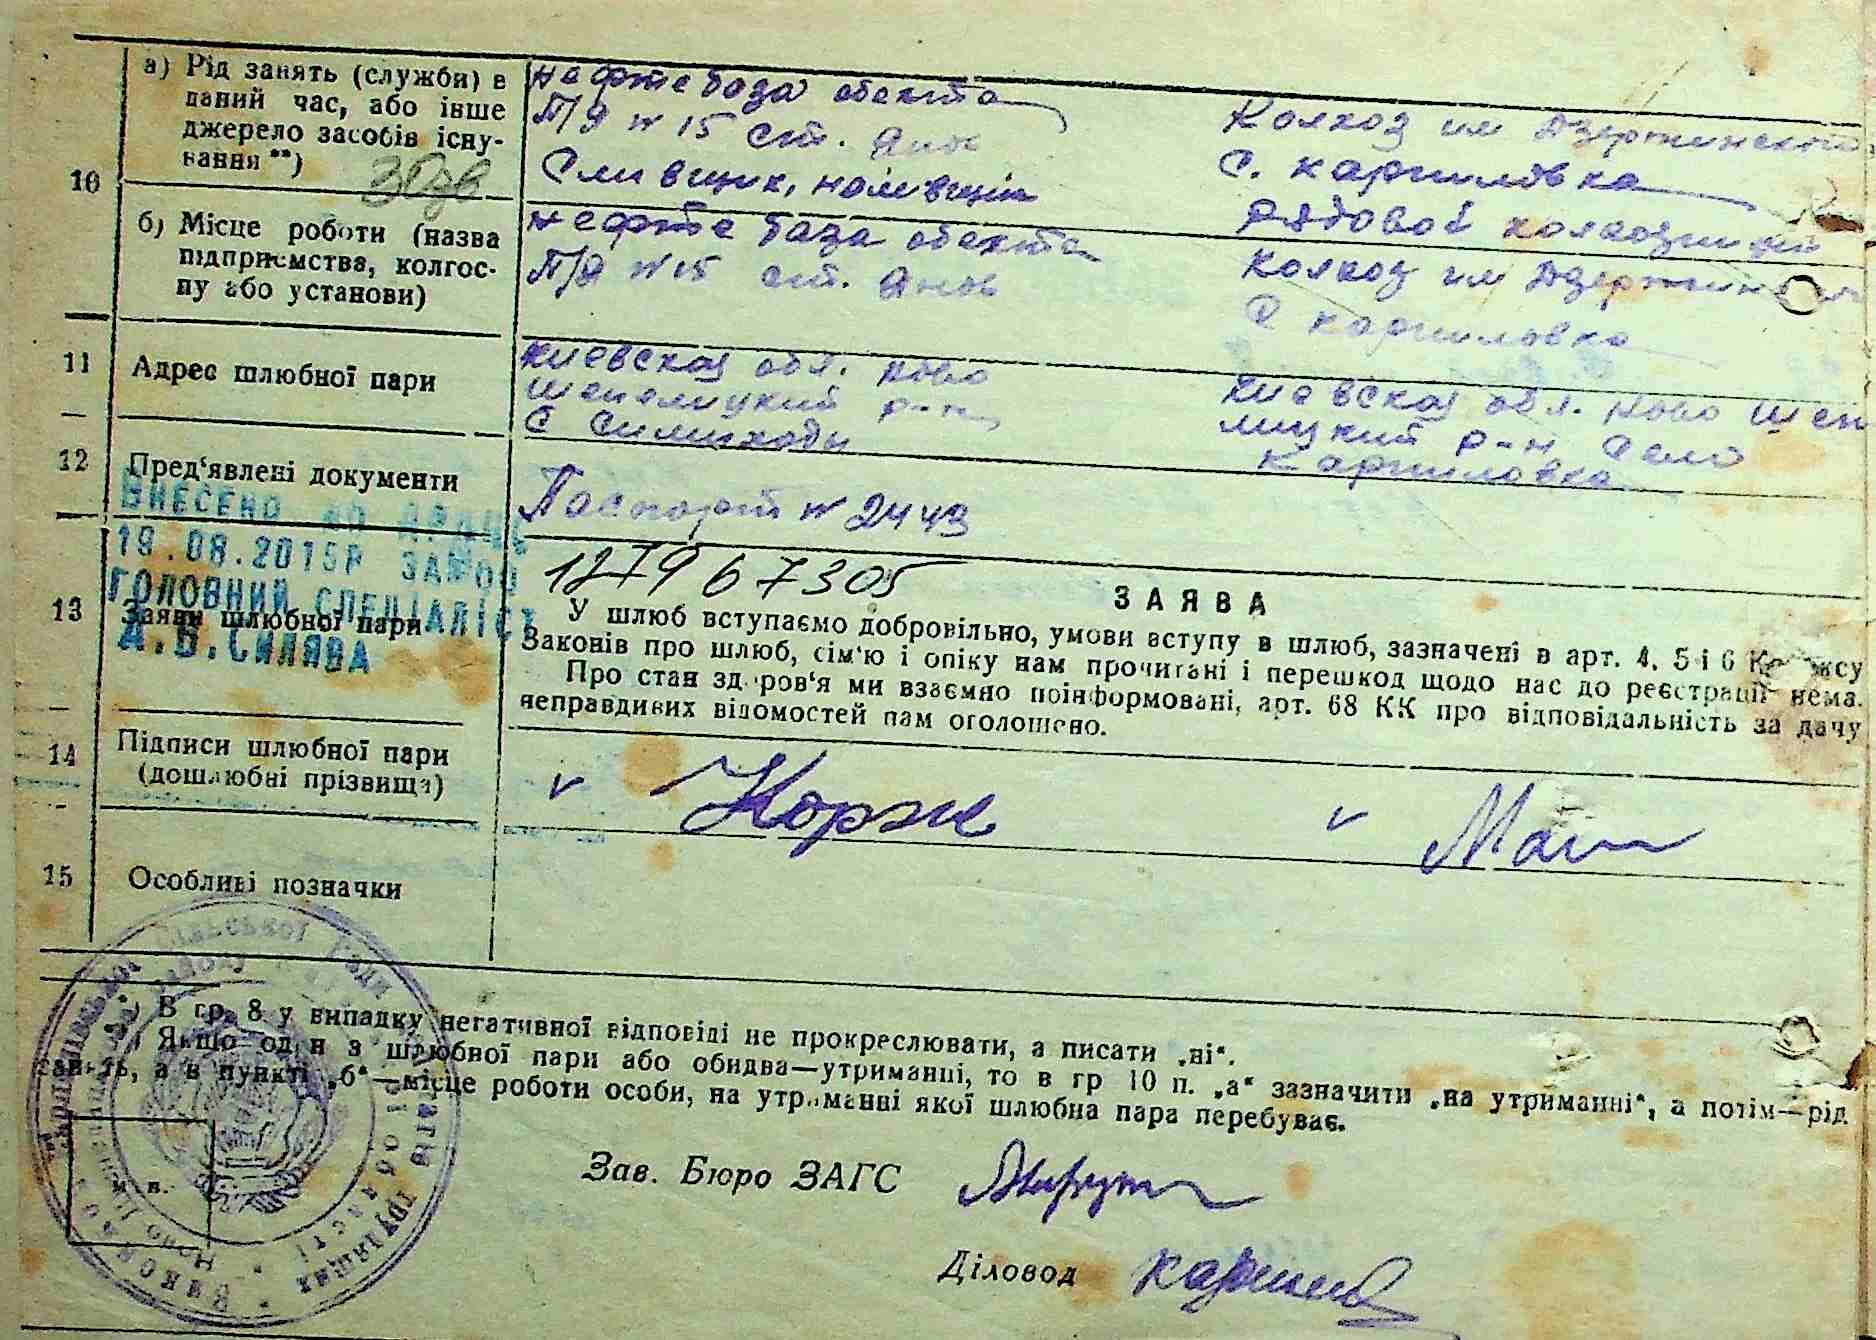 10
а) Рід занять (служби) в
даний час, або інше
джерело засобів існу-
вання **)
нефтебаза обекта
П/Я N 15 ст. Янов
Сливщик, наливщик
Колхоз им Дзержинского
С. Карпиловка
Рядовой
б) Місце роботи (назва
підприємства, колгос-
пу або установи)
нефтебаза обекта
П/Я N 15 ст. Янов
Колхоз им
С Карпиловка
11
Адрес шлюбної пари
Киевская обл. Ново
Шепелицкий р-н
С
Киевская обл. Ново Шепе
лицкий р-н село
Карпиловка
12
Пред‘явлені документи
Паспорт N 2443
ВНЕСЕНО ДО ДРАЦС
19.08.2015Р ЗА №00
ГОЛОВНИЙ СПЕЦІАЛІСТ
А.В.СИЛЯВА
127967305
13
Заяви шлюбної пари
ЗАЯВА
У шлюб вступаємо добровільно, умови вступу в шлюб, зазначені в арт. 4, 5 і 6 Кодексу
Законів про шлюб, сім‘ю і опіку нам прочитані і перешкод щодо нас до реєстрації нема.
Про стан здоров‘я ми взаємно поінформовані, арт. 68 КК про відповідальність за дачу
неправдивих відомостей нам оголошено.
14
Підписи шлюбної пари
(дошлюбні прізвища)
v Корж
v
15
Особливі позначки
В гр. 8 у випадку негативної відповіді не прокреслювати, а писати „ні“.
Якщо один з шлюбної пари або обидва—утриманці, то в гр 10 п. „а“ зазначити „на утриманні“, а потім—рід
занять, а в пункті „б“—місце роботи особи, на утриманні якої шлюбна пара перебуває.
м п.
Зав. Бюро ЗАГС
Діловод